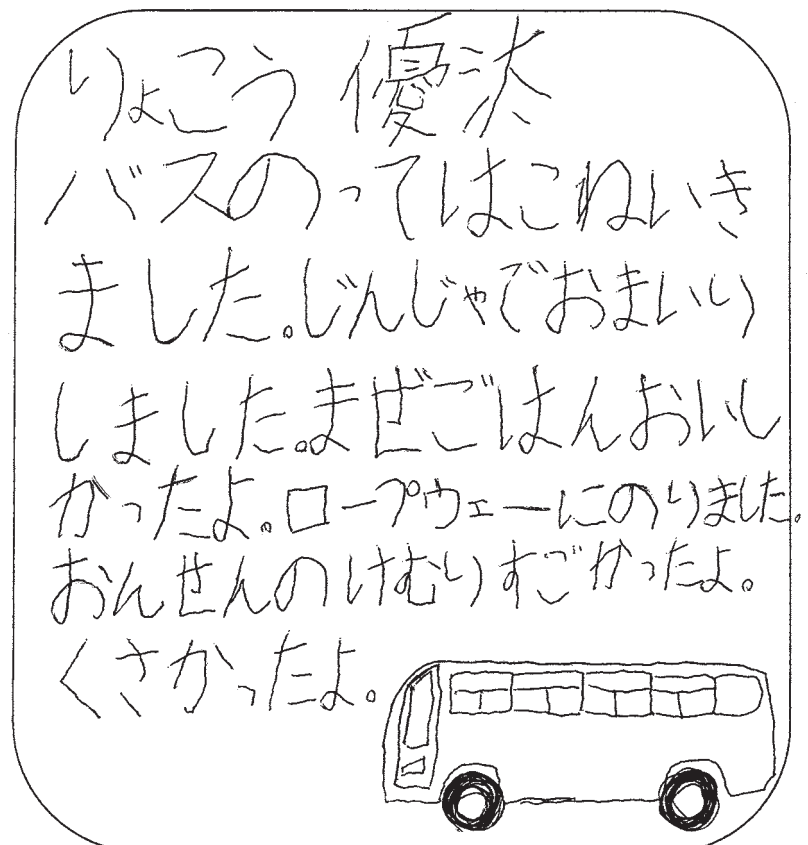 りょこう 優汰
バスのってはこねいき
ました。じんじゃでおまいり
しました。まぜごはんおいし
かったよ。ロープウェーにのりました。
おんせんのけむりすごかったよ。
くさかったよ。